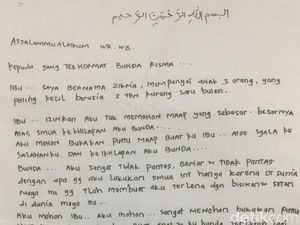 بسم الله الرحمن الرحيم
ASSALAMMUALAIKUM WR. WB.
KEPADA YANG TERHORMAT BUNDA RISMA ...
IBU ... SAYA BERNAMA ZIKRIA, MEMPUNYAI ANAK 3 ORANG, YANG
PALING KECIL BERUSIA 2 THN KURANG SATU BULAN.
IBU ... IZINKAN AKU TUK MEMOHON MAAF YANG SEBESAR-BESARNYA
ATAS SEMUA KEKHILAFAN AKU BUNDA...
AKU MOHON BUKAKAN PINTU MAAF BUAT KU IBU ... ATAS SGALA KE
SALAHANKU DAN KEKHILAFAN AKU BUNDA.
BUNDA ... AKU SANGAT TIDAK PANTAS, BENAR2 TIDAK PANTAS
DENGAN APA YG AKU LAKUKAN SEMUA INI HANYA KARENA DI DUNIA
MAYA ITU YG TLAH MEMBUAT AKU TERLENA DAN BISIKAN2 SETAN
DI DUNIA MAYA ITU...
AKU MOHON IBU.. AKU MOHON ... SANGAT MEMOHON BUKAKAN PINTU
detikcom